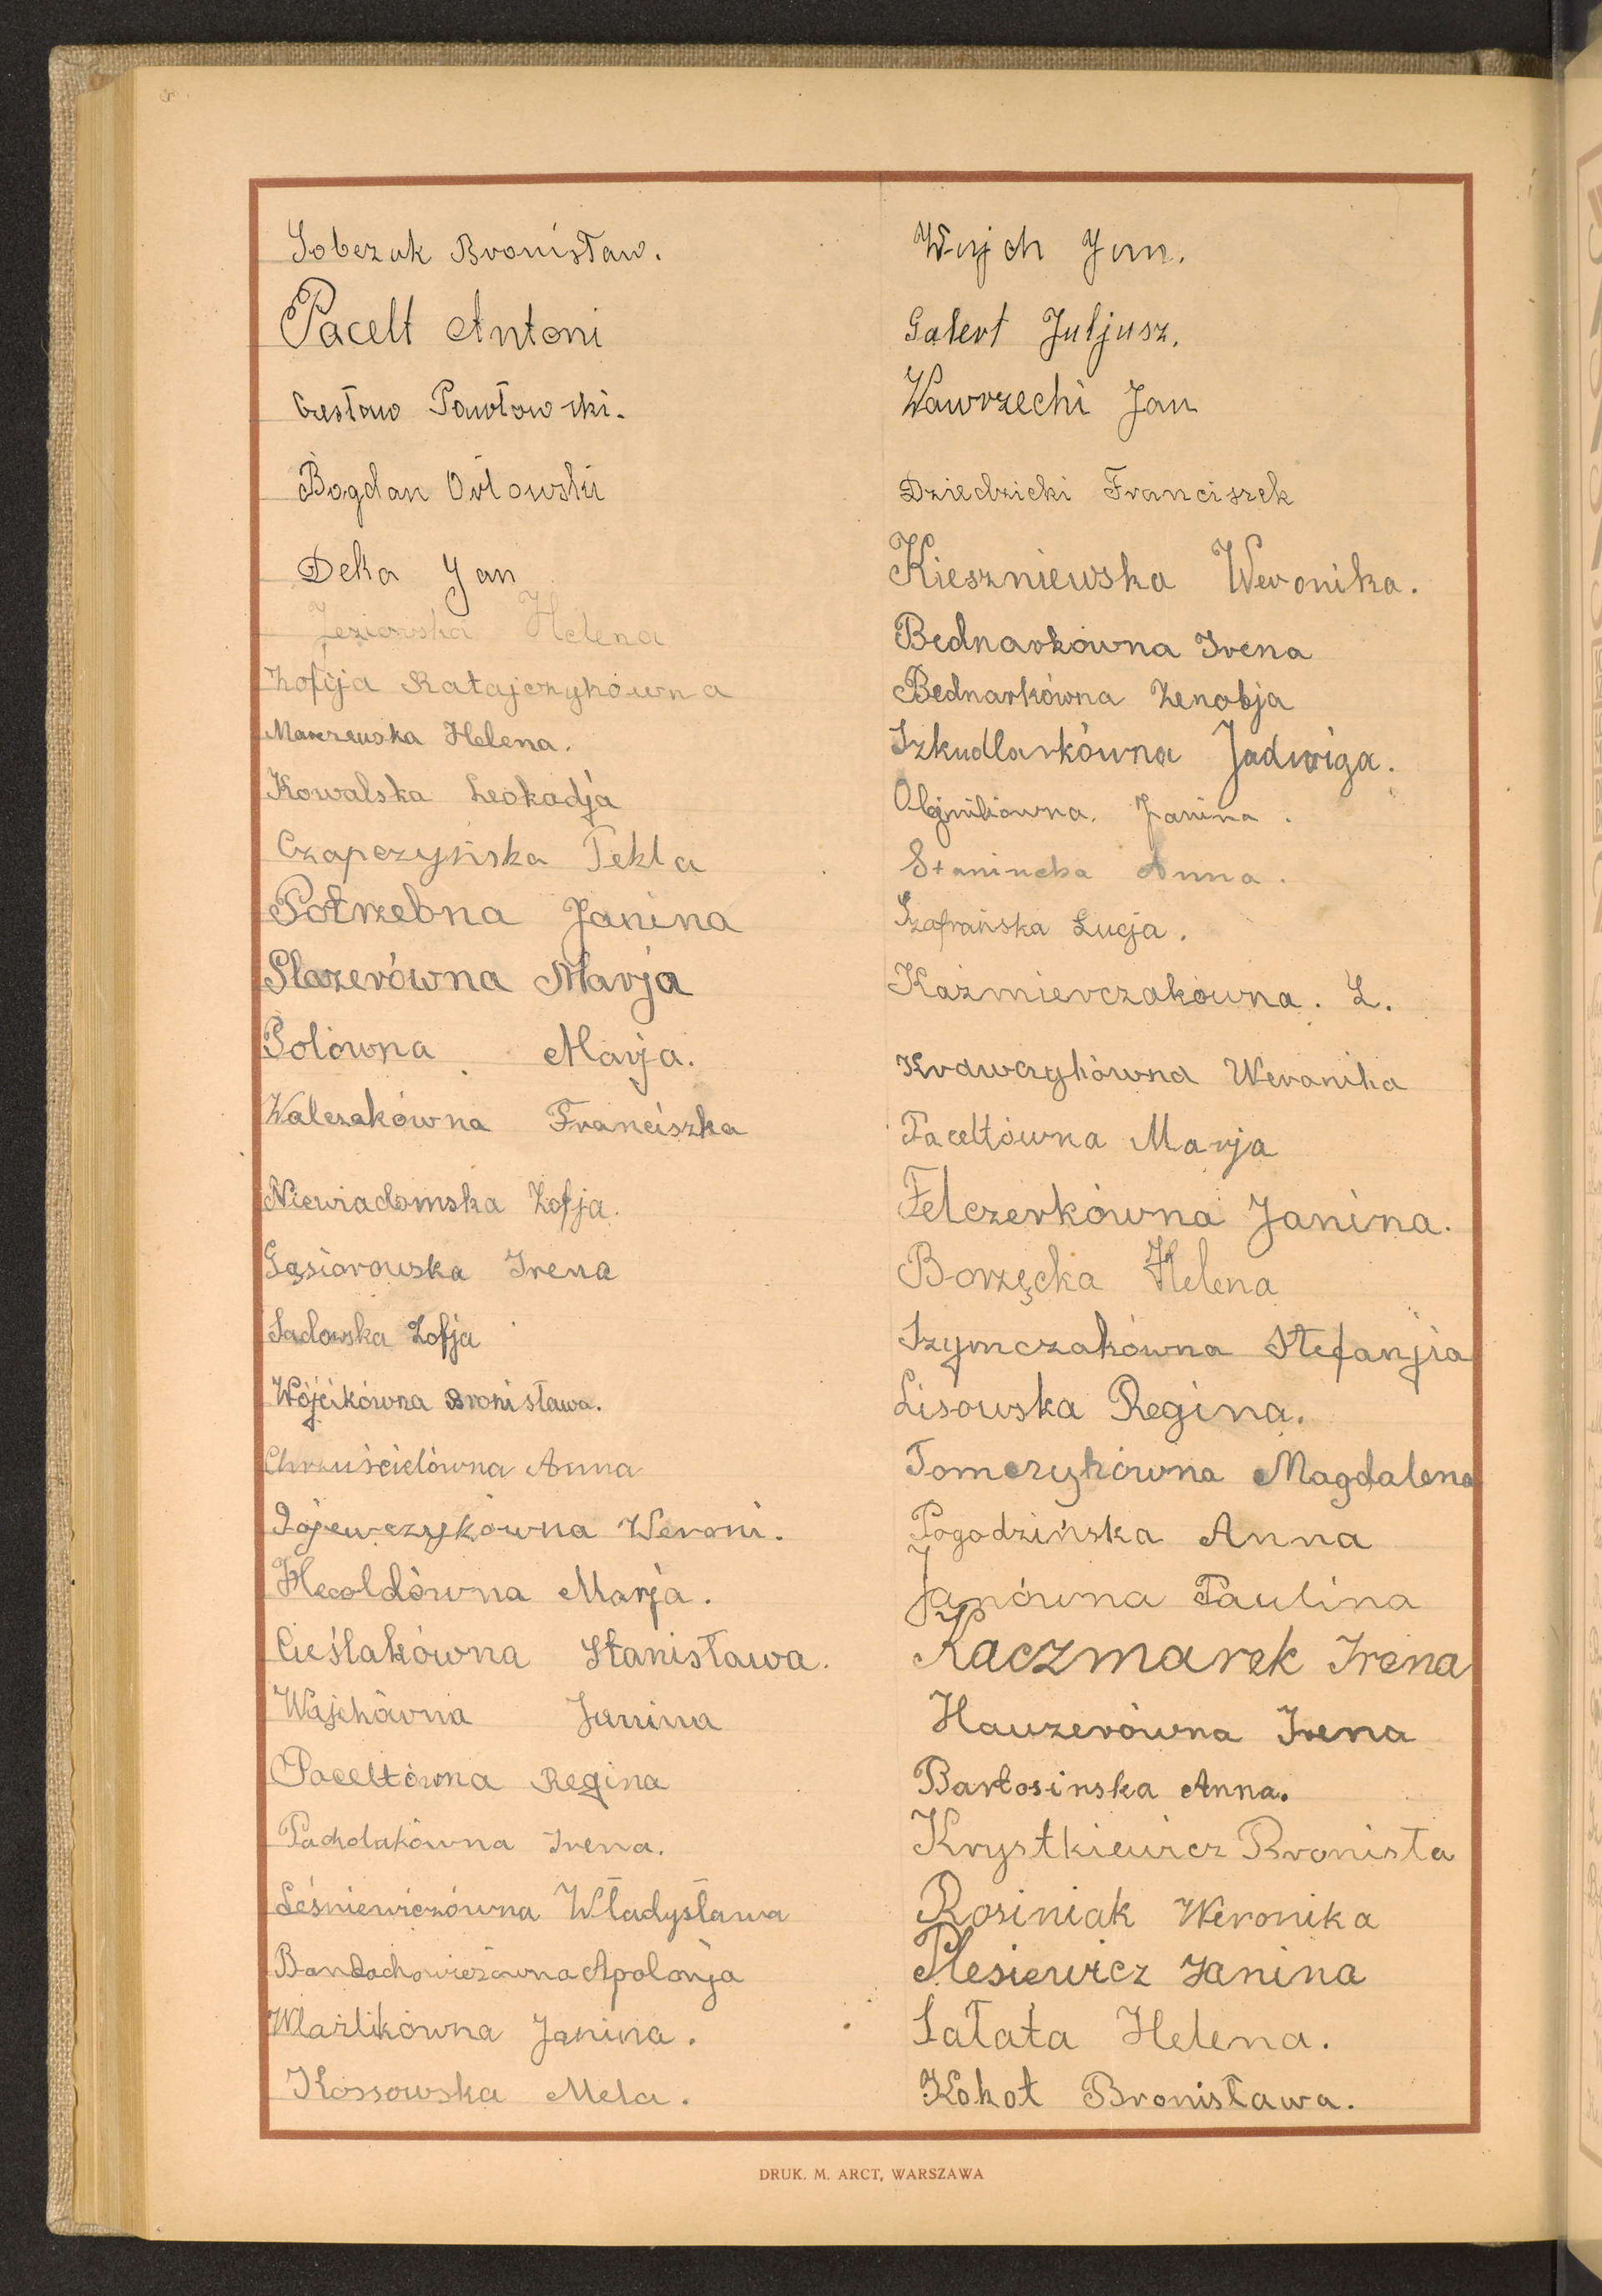 Sobczak Bronisław.
Pacelt Antoni
Czesław Pawłowski.
Bogdan Orłowski
Deka Jan
Jeziorska Helena
Zofija Ratajczykówna
Marczewska Helena.
Kowalska Leokadja
Czapczyńska Tekla
Potrzebna Janina
Plazerówna Marja
Polówna Marja.
Walczakówna Franciszka
Niewiadomska Zofja.
Gąsiorowska Irena
Sadowska Zofja
Wójcikówna Bronisława.
Chruścielówna Anna
Weroni.
Hecoldówna Marja.
Cieślakówna Stanisława.
Wajchówna Janina
Paceltówna Regina
Pacholakówna Irena.
Leśniewiczówna Władysława
Apolonja
Wlaźlikówna Janina.
Kossowska Mela.
Wujch Jan.
Galert Juljusz.
Wawrzecki Jan
Dziedzicki Franciszek
Kieszniewska Weronika.
Bednarkówna Irena
Bednarkówna Zenobja
Szkudlarkówna Jadwiga.
Janina.
Anna.
Szafrańska Łucja.
Kaźmierczakówna. L.
Krawczykówna Weronika
Paceltówna Marja
Felczerkówna Janina.
Borzęcka Helena
Szymczakówna Stefanjia
Lisowska Regina.
Tomczykówna Magdalena
Pogodzińska Anna
Janówna Paulina
Kaczmarek Irena
Hauzerówna Irena
Bartosinska Anna.
Krystkiewicz Bronista
Rosiniak Weronika
Plesiewicz Janina
Sałata Helena.
Kokot Bronisława.
DRUK. M. ARCT, WARSZAWA